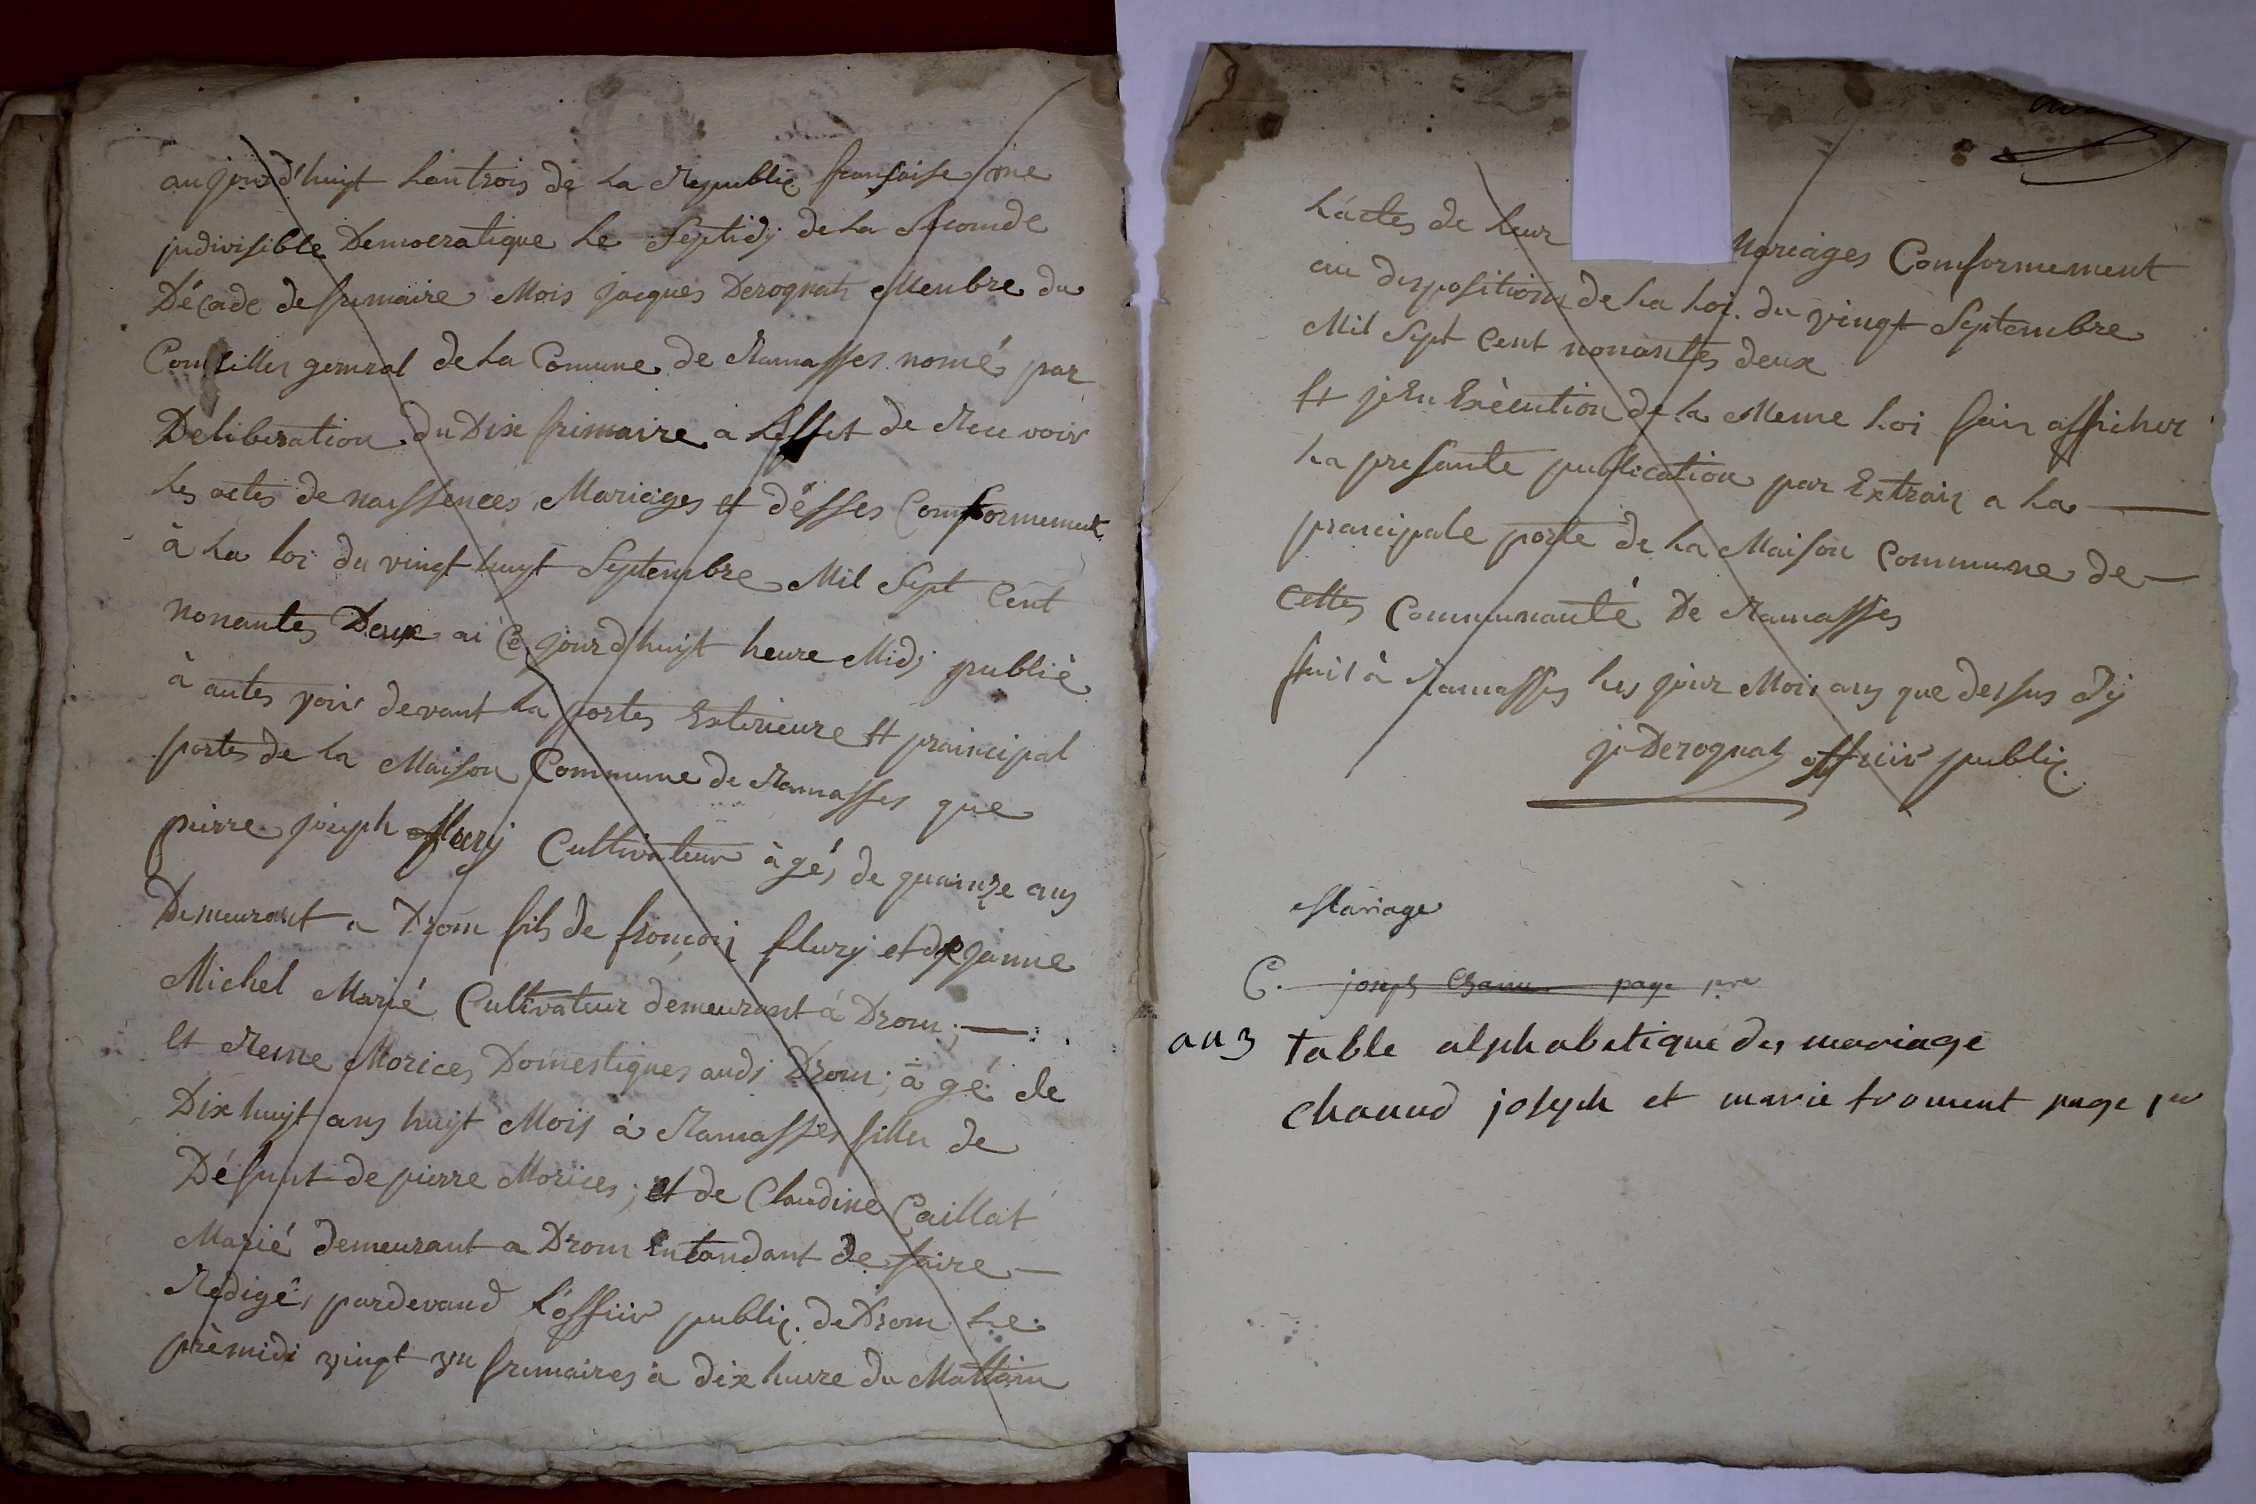 aujourd'huyt Lan trois de La Republiq. françaîse une
judivisible Democratique Le Septidy de La Seconde
Décade de frimaire Mois jacques Derognat Menbre du
Conseiller general de La Comune de Ramasses nomé par
Deliberation du Dix frimaire a L'effet de Recevoir
Les actes de naissences Mariages et désses Comformement
à La loi du vingt huyt Septembre Mil Sept Cent
nonantes Deux ai Ce jourd'huyt heure Midj publiè
à autes voix devant La portes Exterieure Et praincipal
portes de La Maison Commune de Ramasses que
pierre joseph fleury Cultivateur àgés de quainze ans
Demeurant a Drom fils de françois flury et de janne
Michel Marié Cultivateur demeurant à Drom ;
Et Reine Morices Domestiques audi Drom ; àgé de
Dix huyt ans huyt Mois à Ramasses filles de
Défunt de pierre Morices ; et de Claudine Caillat
Marié demeurant a Drom Entandant de faire
Redigés pardevand L'offiir publiq. de Drom Le
prèmidi vingt yn frimaires à dix heure du Mattain
L'actes de Leur Mariages Comformement
au disposition de La Loi du vingt Septembre
Mil Sept Cent nonantes deux
Et j'En Exècution de La Meme Loi fair afficher
La presante publication par Extrait a La
praincipale porte de La Maison Commune de
Cettes Communauté De Ramasses
fait à Ramasses Les jour Mois ans que dessus dj
j. Derognat offiir publiq.
Mariage
C. joseph Chanu page pre
an 3 table alphabetique des mariage
chanud joseph et marie froment page 1er